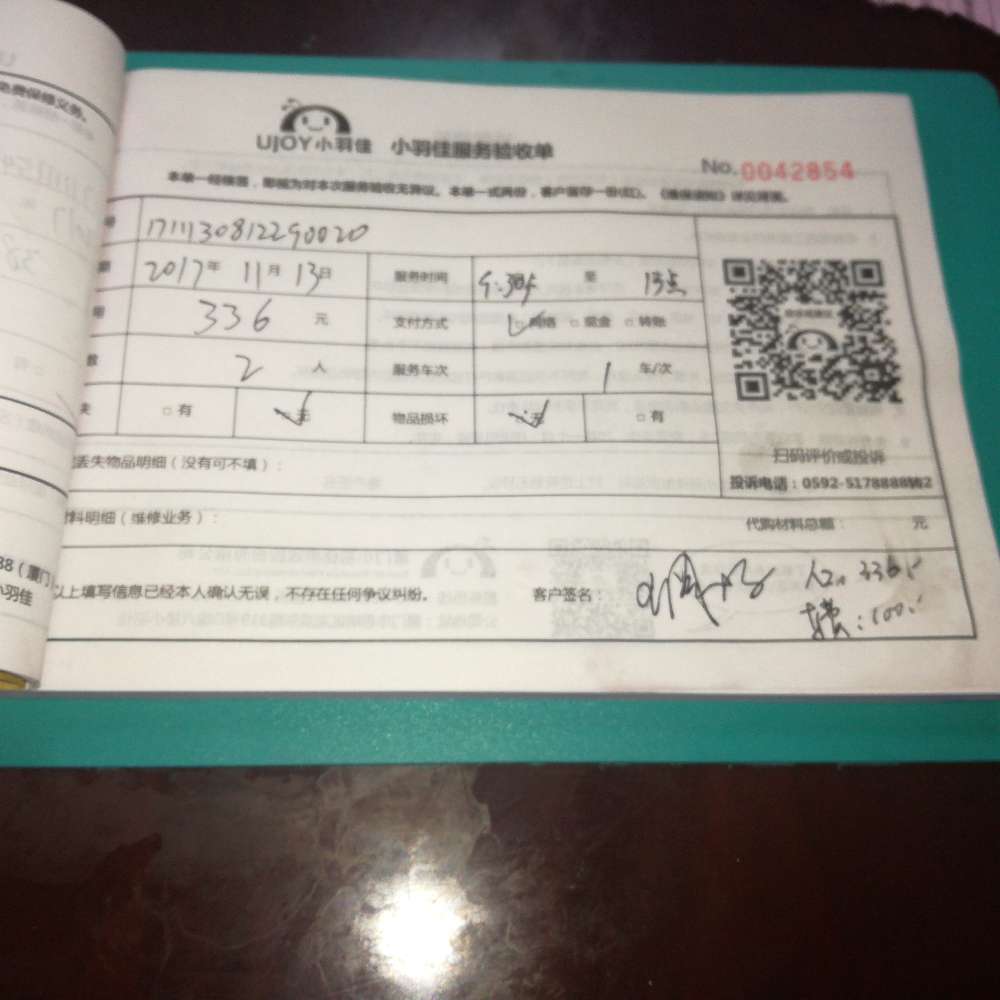 免费保修义务。
UJOY小羽佳 小羽佳服务验收单
No.0042854
本单一经确认，即视为对本次服务验收无异议。本单一式两份，客户留存一份(红)。
1711130812290020
2017年 11月 13日 服务时间 至 13点
336 元 支付方式 网络 □现金 □转账
2 人 服务车次 1 车/次
□有 无 物品损坏 无 □有
丢失物品明细（没有可不填）：
扫码评价或投诉
投诉电话：0592-5178888转2
材料明细（维修业务）： 代购材料总额： 元
88（厦门）
小羽佳
以上填写信息已经本人确认无误，不存在任何争议纠纷。 客户签名：